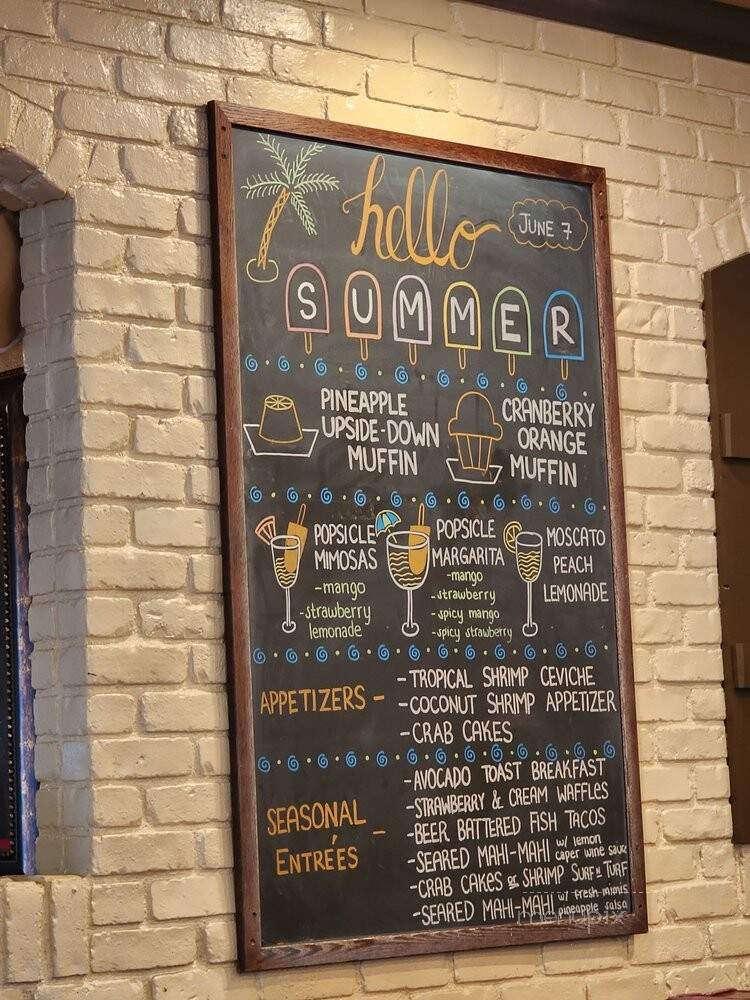 hello
JUNE 7
SUMMER
PINEAPPLE
UPSIDE-DOWN
MUFFIN
CRANBERRY
ORANGE
MUFFIN
POPSICLE
MIMOSAS
-mango
-strawberry
lemonade
POPSICLE
MARGARITA
-mango
-strawberry
-spicy mango
-spicy strawberry
MOSCATO
PEACH
LEMONADE
APPETIZERS -
-TROPICAL SHRIMP CEVICHE
-COCONUT SHRIMP APPETIZER
-CRAB CAKES
SEASONAL
ENTRÉES -
-AVOCADO TOAST BREAKFAST
-STRAWBERRY & CREAM WAFFLES
-BEER BATTERED FISH TACOS
-SEARED MAHI-MAHI w/ lemon
caper wine sauc
-CRAB CAKES or SHRIMP SURF N TURF
-SEARED MAHI-MAHI w/ fresh mimis
pineapple salsa
menupix